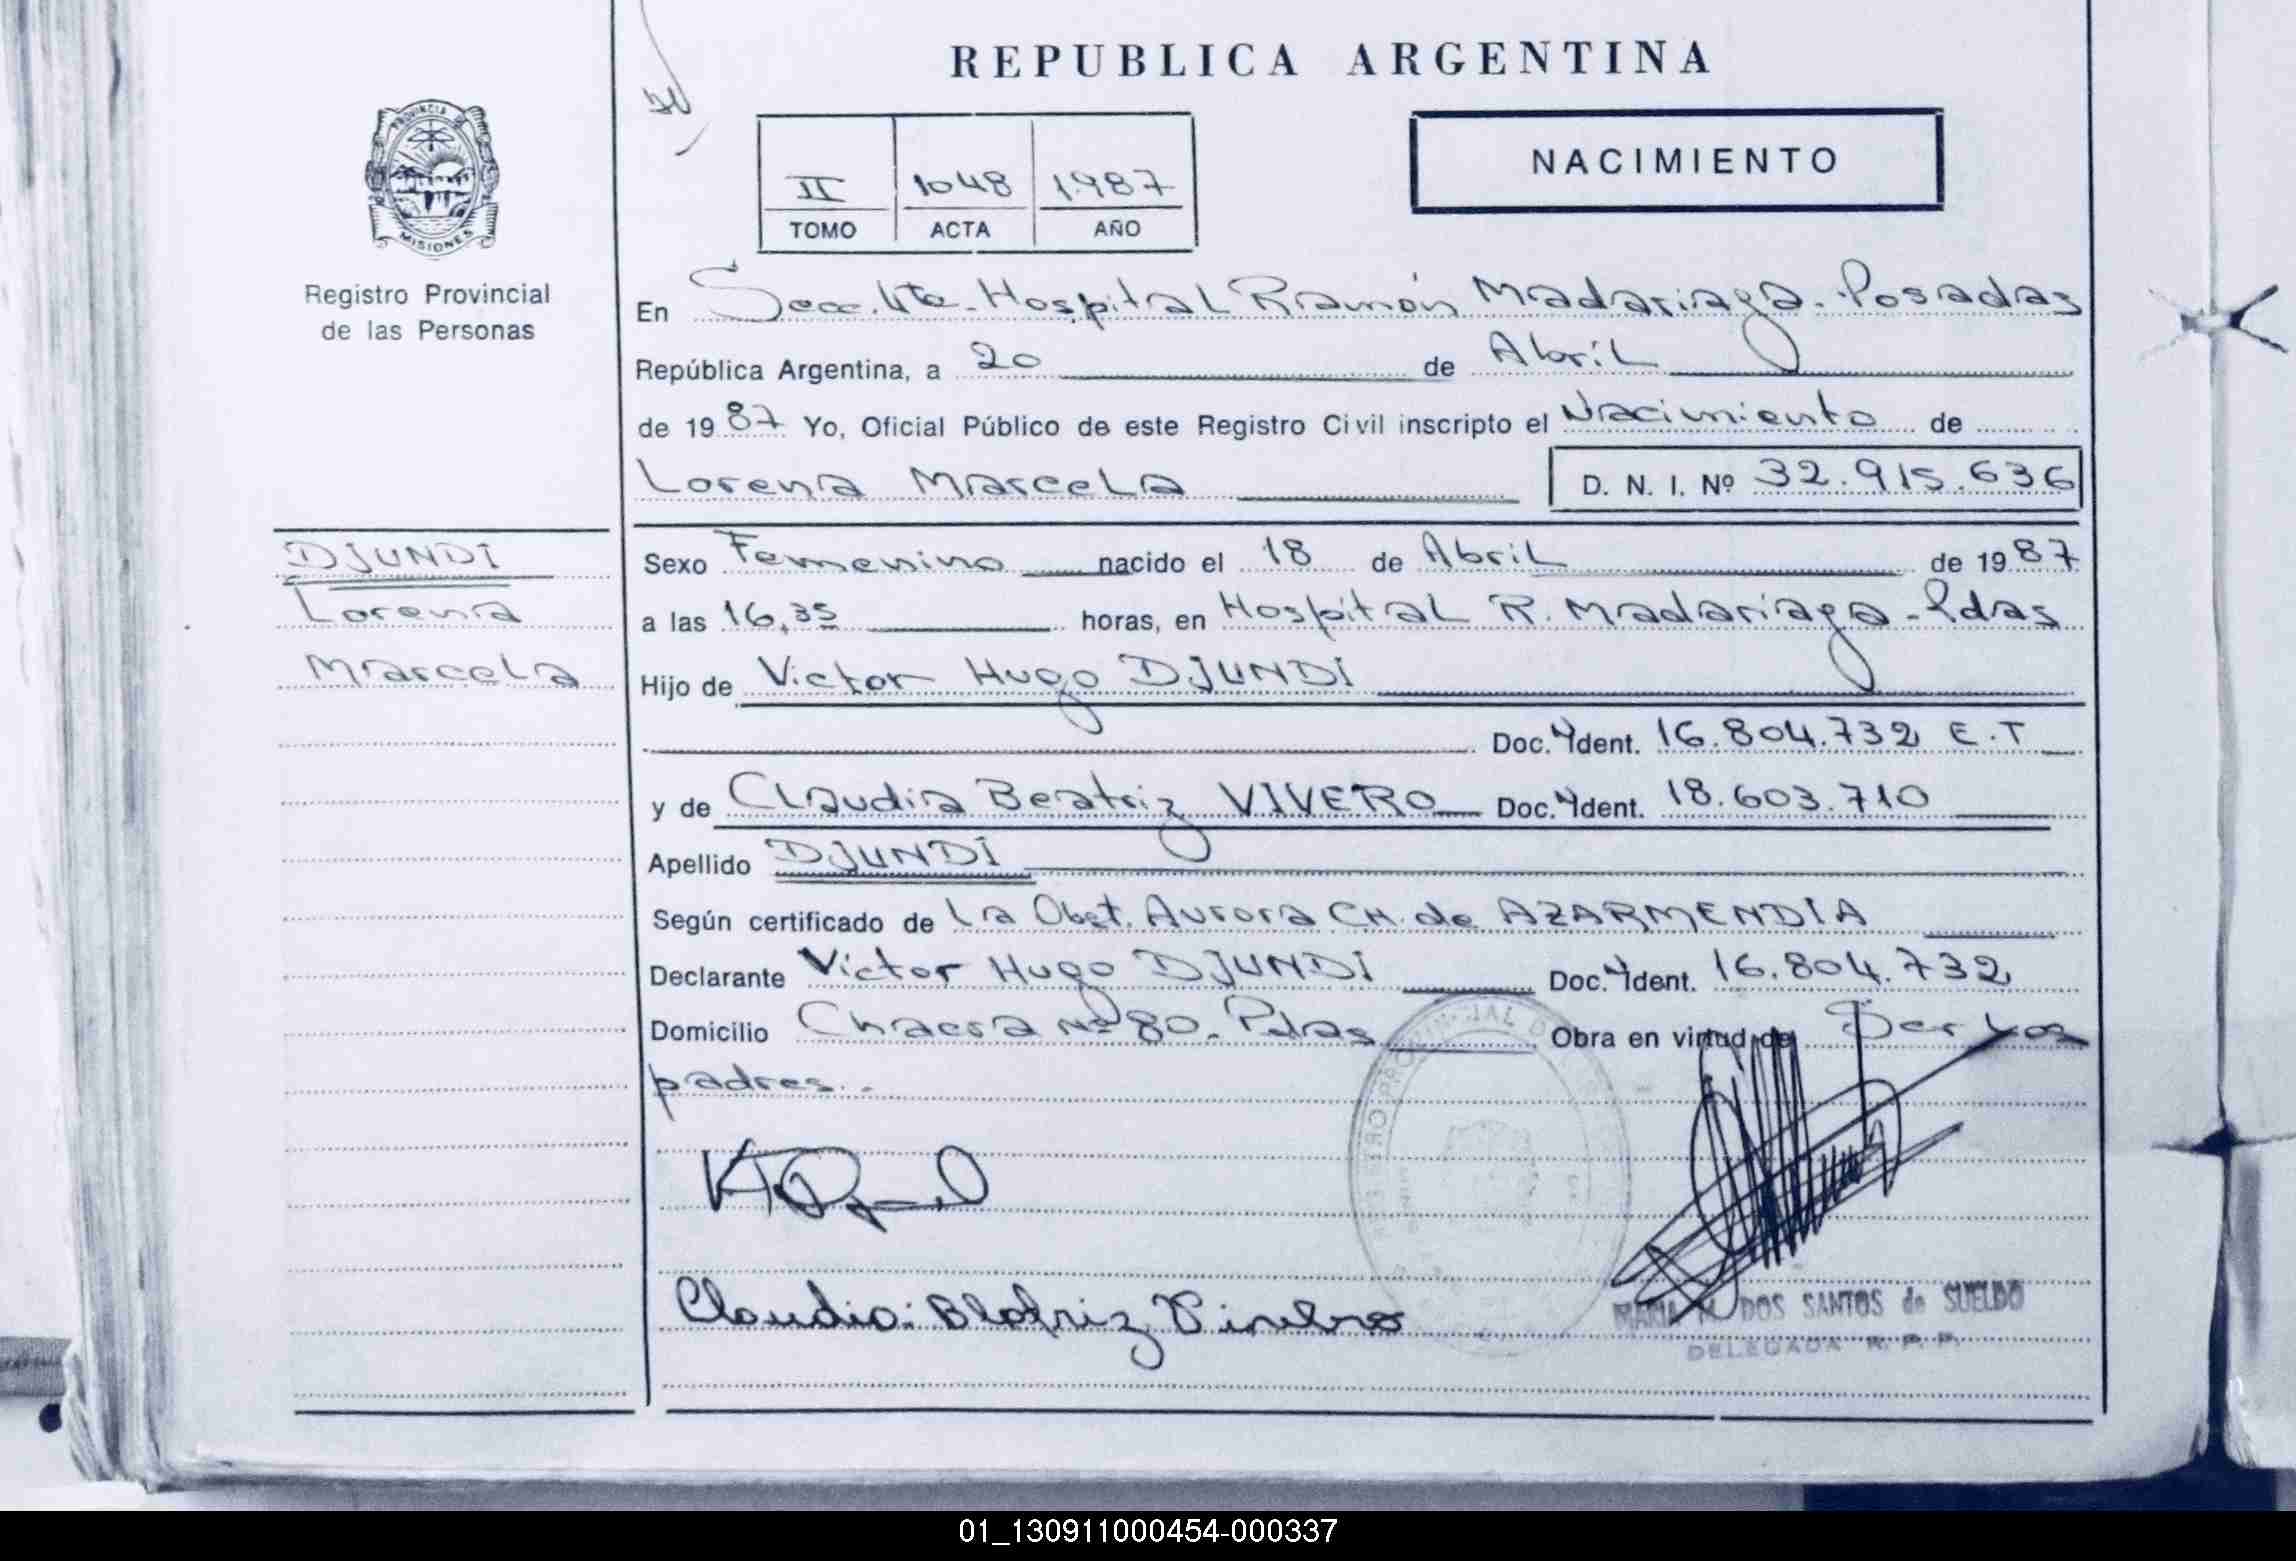 REPUBLICA ARGENTINA
PROVINCIA DE
MISIONES
Registro Provincial
de las Personas
II 1048 1987
TOMO ACTA AÑO
NACIMIENTO
En Secc. 4ta - Hospital Ramón Madariaga - Posadas
República Argentina, a 20 de Abril
de 1987 Yo, Oficial Público de este Registro Civil inscripto el Nacimiento de
Lorena Marcela D. N. I. Nº 32.915.636
DJUNDI
Lorena
Marcela
Sexo Femenino nacido el 18 de Abril de 1987
a las 16,35 horas, en Hospital R. Madariaga - Pdas
Hijo de Victor Hugo DJUNDI
Doc. Ident. 16.804.732 E.T
y de Claudia Beatriz VIVERO Doc. Ident. 18.603.710
Apellido DJUNDI
Según certificado de La Obst. Aurora CH. de AZARMENDIA
Declarante Victor Hugo DJUNDI Doc. Ident. 16.804.732
Domicilio Chacra Nº 80 - Pdas Obra en virtud de Ser Los
padres.-
Claudia Beatriz Vivero
MARIA M. DOS SANTOS de SUELDO
DELEGADA R. P. P.
01_130911000454-000337